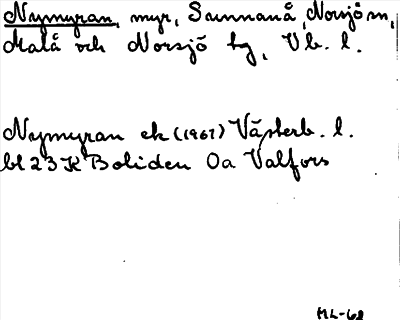 Nymyran, myr, Sunnanå, Norsjö sn,
Malå och Norsjö tg, Vb. l.
Nymyran ek (1967) Västerb. l.
bl 23 K Boliden 0a Valfors
ML-68